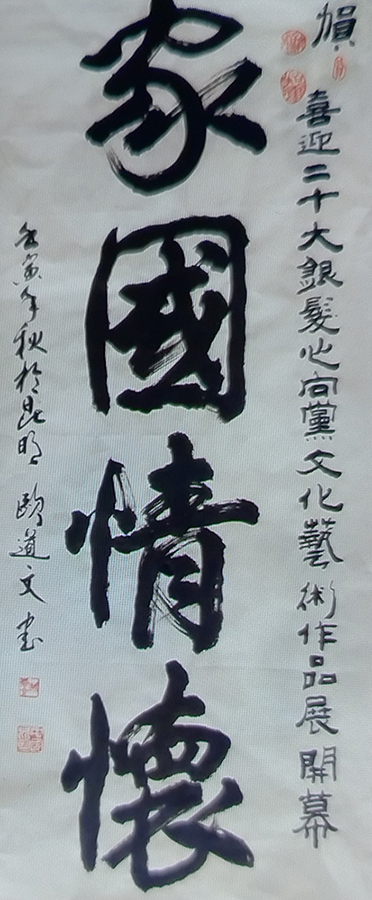 賀
喜迎二十大銀髮心向黨文化藝術作品展開幕
家國情懷
壬寅年秋於昆明 歐道文书